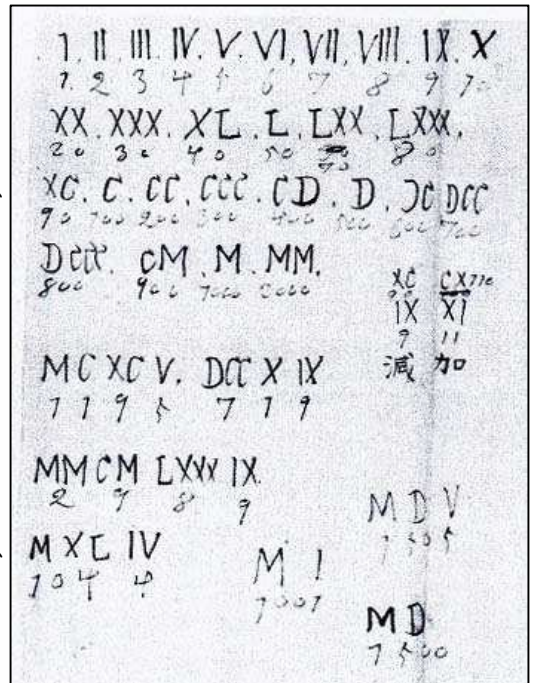 I. II. III. IV. V. VI. VII. VIII. IX. X
1. 2 3 4 5 6 7 8 9 10
XX. XXX. XL. L. LXX. LXXX.
20 30 40 50 80
XC. C. CC. CCC. CD. D. DC DCC
90 100 200 300 400 500 600 700
DCCC. CM. M. MM.
800 900 1000 2000
XC CX 110
IX XI
9 11
減 加
MC XC V. DCC X IX
1 1 9 5 7 1 9
MM CM LXXX IX
2 9 8 9
M D V
1 5 0 5
M XL IV
1 0 4 4
M I
1001
M D
1 5 00